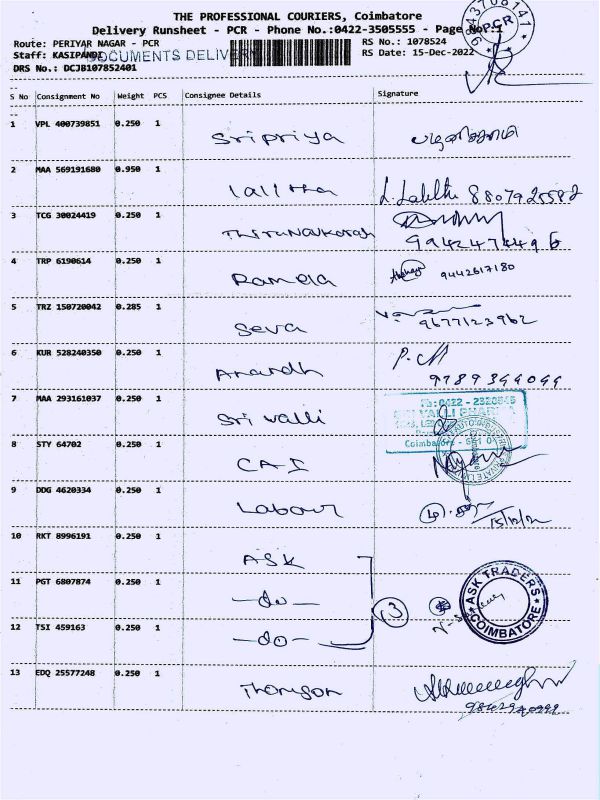 THE PROFESSIONAL COURIERS, Coimbatore
Delivery Runsheet - PCR - Phone No.:0422-3505555 - Page No.:1
Route: PERIYAR NAGAR - PCR
RS No.: 1078524
Staff: KASIPANDI
DOCUMENTS DELIVERY
RS Date: 15-Dec-2022
DRS No.: DCJB107852401
PCR
S No Consignment No Weight PCS Consignee Details Signature
1 VPL 400739851 0.250 1 Sripriya
2 MAA 569191680 0.950 1 Lalitha L. Lalitha 8807925582
3 TCG 30024419 0.250 1 Thirunavkarash 9942474496
4 TRP 6190614 0.250 1 Ramela 9442617180
5 TRZ 150720042 0.285 1 Seva 9677123962
6 KUR 528240350 0.250 1 Anandh 9789394099
7 MAA 293161037 0.250 1 Sri valli
Ph: 0422 - 2320545
8 STY 64702 0.250 1 CAI
9 DDG 4620334 0.250 1 Labour 15/12/22
10 RKT 8996191 0.250 1 ASK
11 PGT 6807874 0.250 1 -do- 3
12 TSI 459163 0.250 1 -do-
ASK TRADERS COIMBATORE
13 EDQ 25577248 0.250 1 Thomson